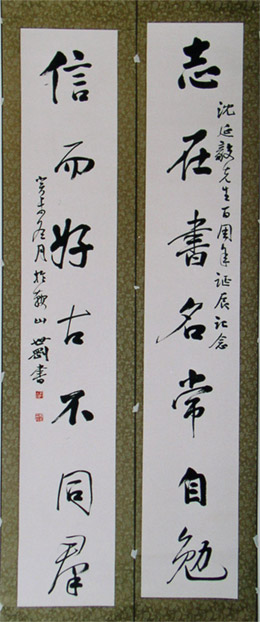 志在書名常自勉
沈延毅先生百周年誕辰記念
信而好古不同羣
月於鞍山 書